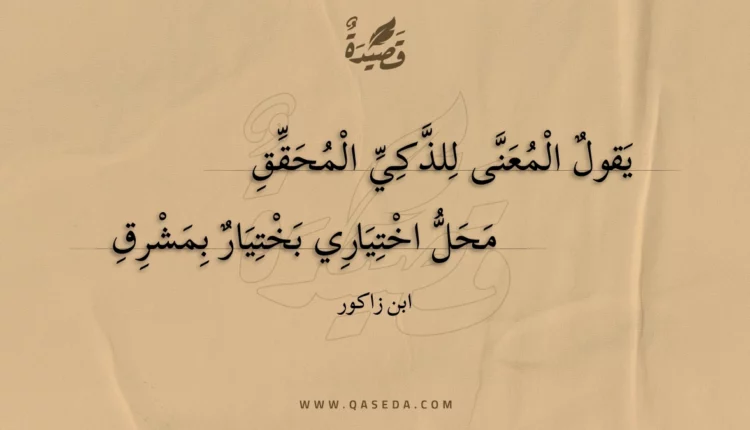 قَصِيْدَةٌ
يَقولٌ الْمُعَنَّى لِلذَّكِيِّ الْمُحَقِّقِ
مَحَلُّ اخْتِيَارِي بَخْتِيَارٌ بِمَشْرِقِ
ابن زاكور
WWW.QASEDA.COM